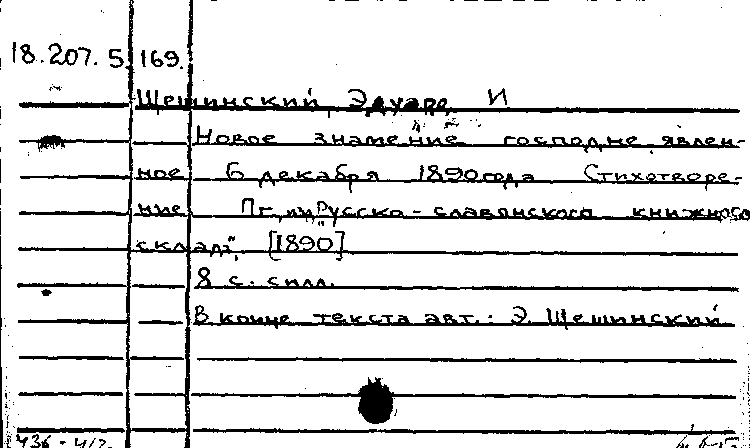 18.207.5.169.
Щешинский, Эдуард И
Новое знамение господне явлен-
ное 6 декабря 1890 года Стихотворе-
ние Пг, "Русско-славянского книжного
склада", [1890]
8 с. силл.
В конце текста авт.: Э. Щешинский
436-412.